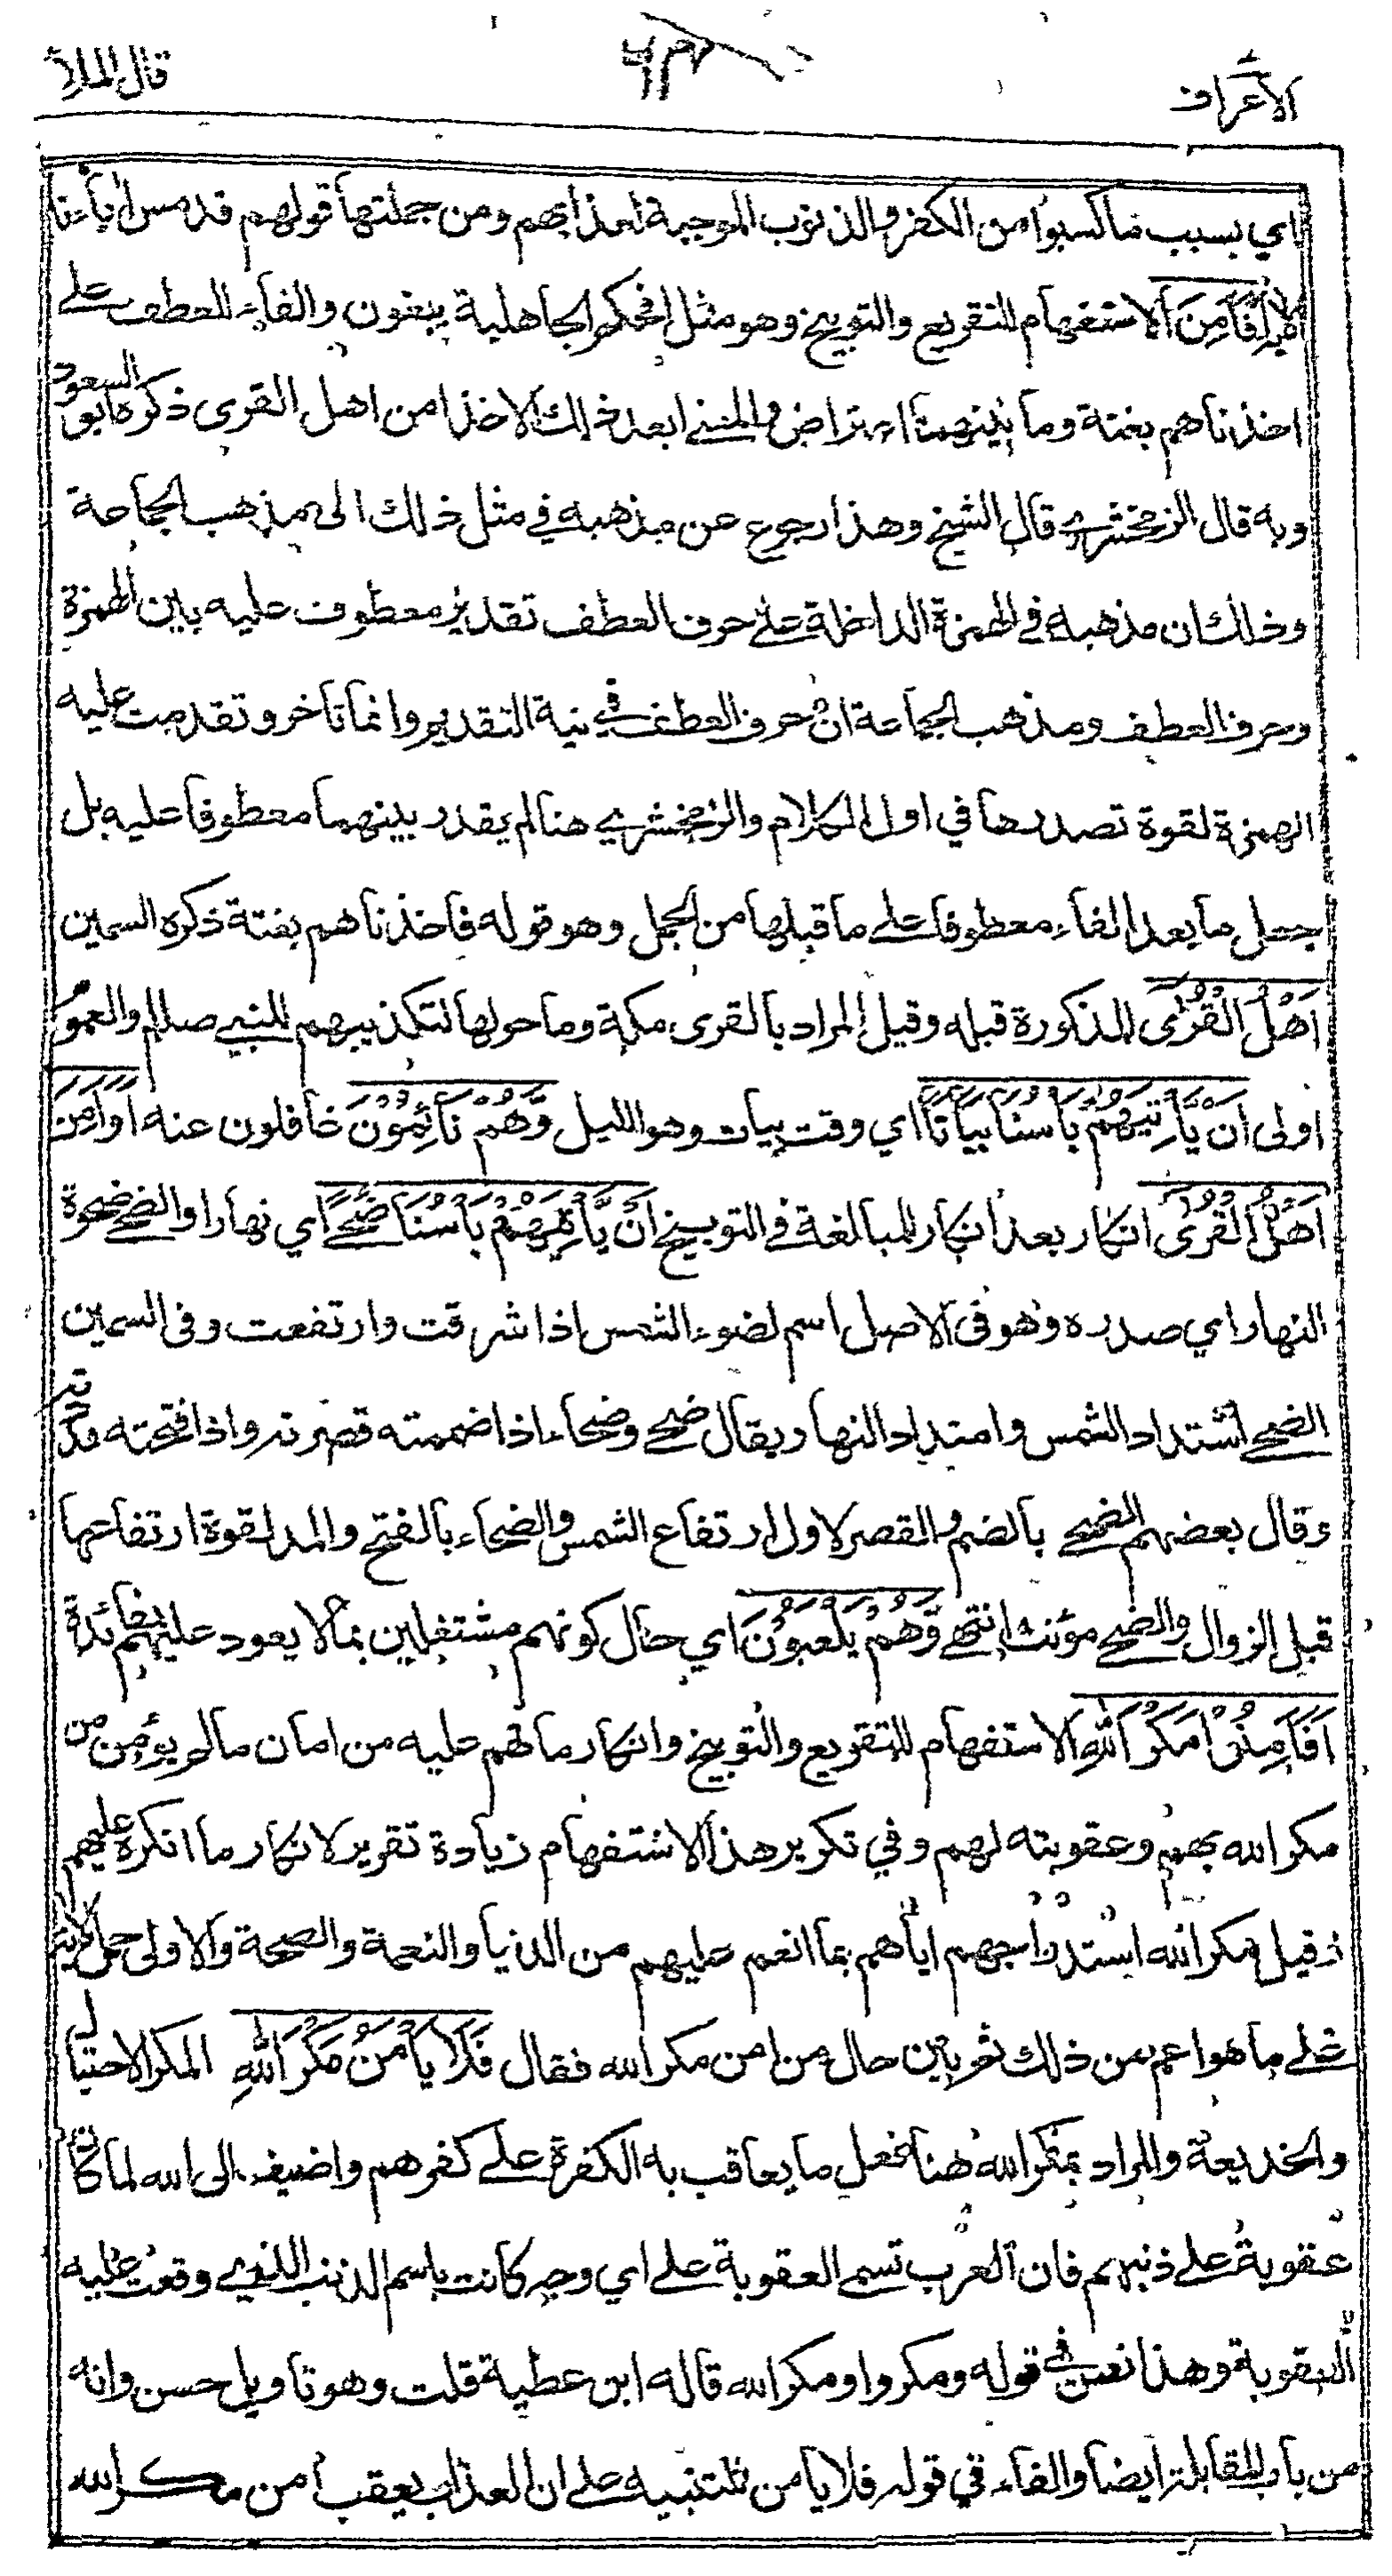 الأعراف
قال الملأ
اي بسبب ما كسبوا من الكفر والذنوب الموجبة لعذابهم ومن جملتها قولهم قد مس اٰباءنا
أفأمن الاستفهام للتقريع والتوبيخ وهو مثل افحكم الجاهلية يبغون والفاء للعطف على
اخذناهم بغتة وما بينهما اعتراض والمعنى ابعد ذلك الاخذ امن اهل القرى ذكره ابو السعود
وبه قال الزمخشري قال الشيخ وهذا رجوع عن مذهبه في مثل ذلك الى مذهب الجماعة
وذلك ان مذهبه في الهمزة الداخلة على حرف العطف تقدير معطوف عليه بين الهمزة
وحرف العطف ومذهب الجماعة ان حرف العطف في نية التقديم وانما تاخر وتقدمت عليه
الهمزة لقوة تصدرها في اول الكلام والزمخشري هنا لم يقدر بينهما معطوفا عليه بل
جعل ما بعد الفاء معطوفا على ما قبلها من الجمل وهو قوله فاخذناهم بغتة ذكره السمين
اَهْلُ الْقُرٰى المذكورة قبله وقيل المراد بالقرى مكة وما حولها لتكذيبهم للنبي صللم والعموم
اولى اَنْ يَّأْتِيَهُمْ بَأْسُنَا بَيَاتًا اي وقت بيات وهو الليل وَّهُمْ نَائِمُوْنَ غافلون عنه اَوَاَمِنَ
اَهْلُ الْقُرٰى انكار بعد انكار للمبالغة في التوبيخ اَنْ يَّأْتِيَهُمْ بَأْسُنَا ضُحًى اي نهارا والضحى ضحوة
النهار اي صدره وهو في الاصل اسم لضوء الشمس اذا شرقت وارتفعت وفى السمين
الضحى اشتداد الشمس وامتداد النهار ويقال ضحى وضحاء اذا ضممته قصرته واذا فتحته مددته
وقال بعضهم الضحى بالضم والقصر لاول ارتفاع الشمس والضحاء بالفتح والمد لقوة ارتفاعها
قبل الزوال والضحى مؤنث انتهى وَّهُمْ يَلْعَبُوْنَ اي حال كونهم مشتغلين بما لا يعود عليهم بفائدة
اَفَاَمِنُوْا مَكْرَ اللّٰهِ الاستفهام للتقريع والتوبيخ وانكار ما هم عليه من امان ما لم يؤمن من
مكر الله بهم وعقوبته لهم وفي تكرير هذا الاستفهام زيادة تقرير لانكار ما انكره عليهم
وقيل مكر الله استدراجهم اياهم بما انعم عليهم من الدنيا والنعمة والصحة والاولى حمل الاية
على ما هو اعم من ذلك ثم بين حال من امن مكر الله فقال فَلَا يَأْمَنُ مَكْرَ اللّٰهِ المكر الاحتيال
والخديعة والمراد بمكر الله هنا فعل ما يعاقب به الكفرة على كفرهم واضيف الى الله لما كان
عقوبة على ذنبهم فان العرب تسمي العقوبة على اي وجه كانت باسم الذنب الذي وقعت عليه
العقوبة وهذا نص في قوله ومكروا ومكر الله قاله ابن عطية قلت وهو تاويل حسن وانه
من باب المقابلة ايضا والفاء في قوله فلا يأمن للتنبيه على ان العذاب يعقب امن مكر الله